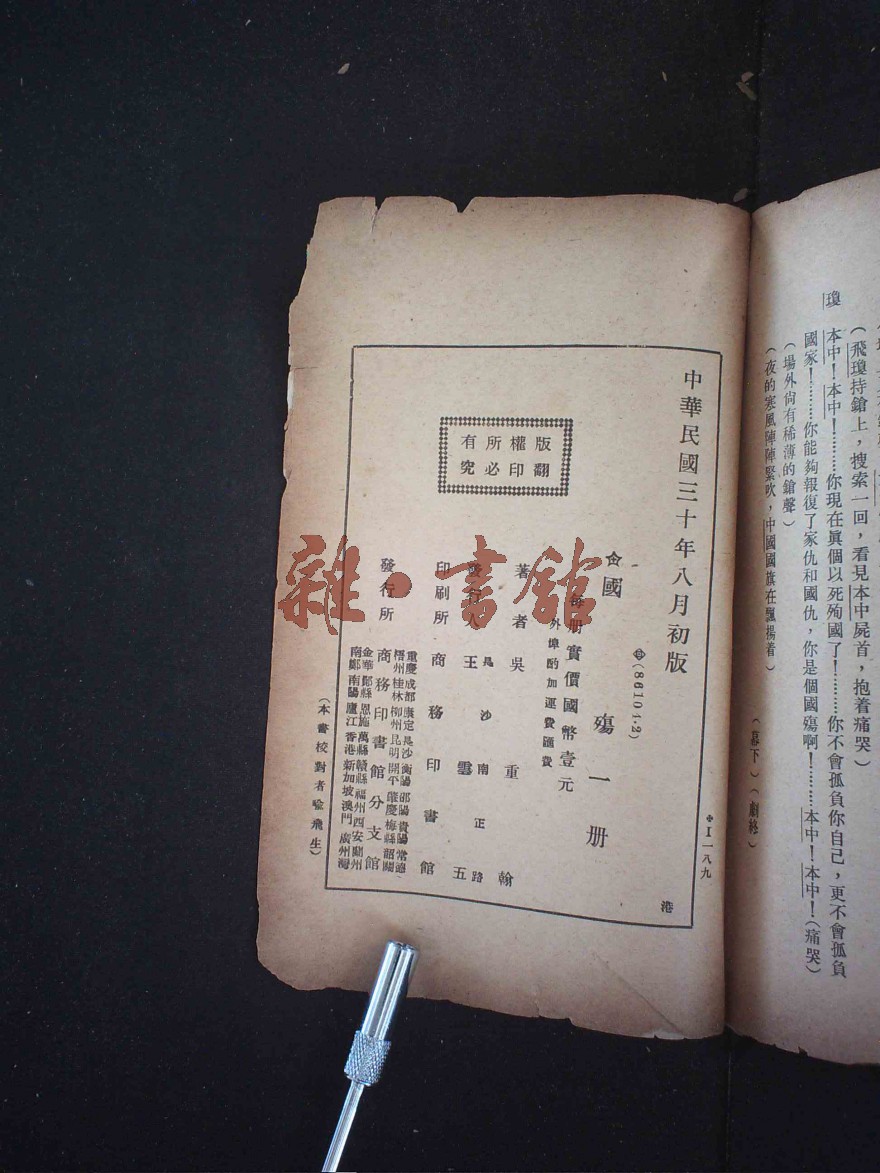 瓊
（飛瓊持鎗上，搜索一回，看見本中屍首，抱着痛哭）
本中！本中！………你現在眞個以死殉國了！………你不會孤負你自己，更不會孤負
國家！………你能夠報復了家仇和國仇，你是個國殤啊！………本中！本中！（痛哭）
（場外尙有稀薄的鎗聲）
（夜的寒風陣陣緊吹，中國國旗在飄揚着）
（幕下）（劇終）
I一八九
中華民國三十年八月初版
港
(86101.2)
國殤一册
每册實價國幣壹元
外埠酌加運費匯費
著者 吳重翰
發行人 王雲五
長沙南正路
印刷所 商務印書館
發行所 商務印書館分支館
重慶 成都 康定 長沙 衡陽 邵陽 貴陽 常德
梧州 桂林 柳州 昆明 開平 肇慶 梅縣 韶關
金華 鄞縣 恩施 萬縣 贛縣 福州 西安 蘭州
南鄭 南陽 廬江 香港 新加坡 澳門 廣州灣
版權所有
翻印必究
（本書校對者喩飛生）
雜·書館